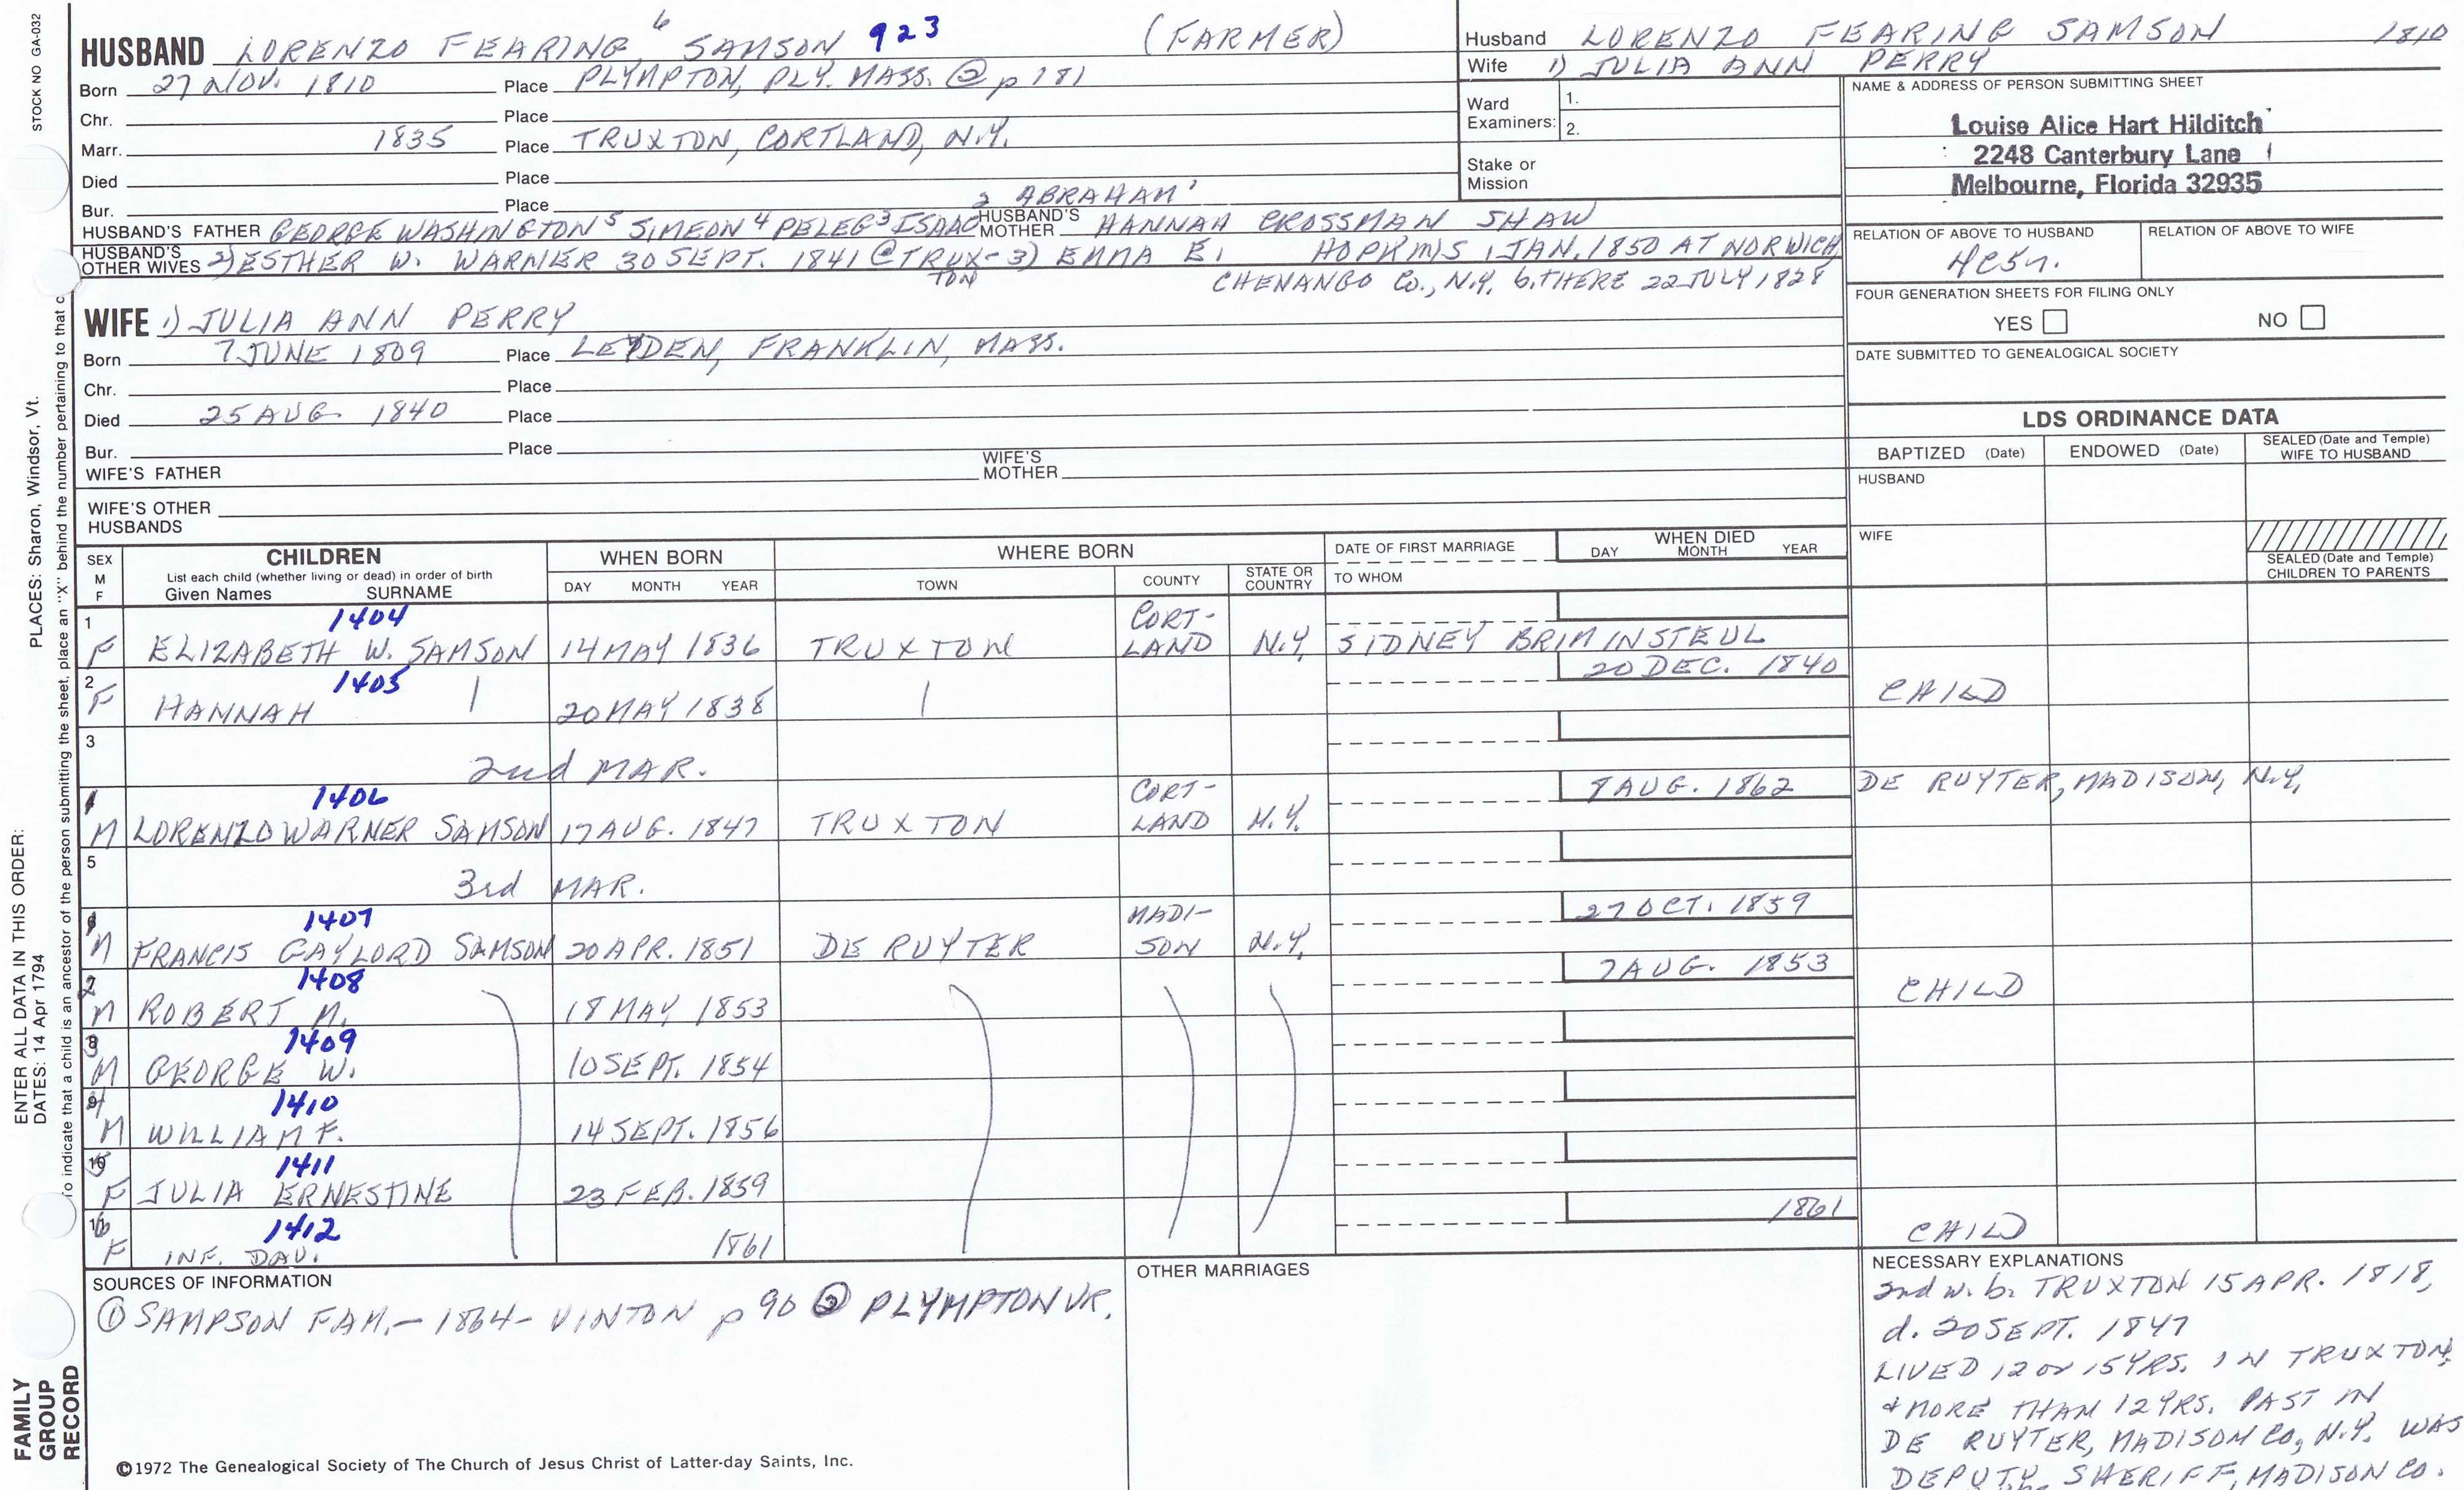 STOCK NO GA-032
HUSBAND LORENZO FEARING 6 SAMSON 923 (FARMER)
Born 27 NOV. 1810 Place PLYMPTON, PLY. MASS. @ p 181
Chr. Place
Marr. 1835 Place TRUXTON, CORTLAND, N.Y.
Died Place
Bur. Place
2 ABRAHAM'
HUSBAND'S FATHER GEORGE WASHINGTON 5 SIMEON 4 PELEG 3 ISAAC HUSBAND'S MOTHER HANNAH CROSSMAN SHAW
HUSBAND'S OTHER WIVES 2) ESTHER W. WARNER 30 SEPT. 1841 @ TRUX- 3) EMMA E. HOPKINS 1 JAN. 1850 AT NORWICH
TON CHENANGO Co., N.Y. b. THERE 22 JULY 1828
WIFE 1) JULIA ANN PERRY
Born 7 JUNE 1809 Place LEYDEN, FRANKLIN, MASS.
Chr. Place
Died 25 AUG. 1840 Place
Bur. Place
WIFE'S FATHER WIFE'S MOTHER
WIFE'S OTHER HUSBANDS
Husband LORENZO FEARING SAMSON 1810
Wife 1) JULIA ANN PERRY
Ward Examiners: 1.
2.
Stake or Mission
NAME & ADDRESS OF PERSON SUBMITTING SHEET
Louise Alice Hart Hilditch
2248 Canterbury Lane
Melbourne, Florida 32935
RELATION OF ABOVE TO HUSBAND RELATION OF ABOVE TO WIFE
4C5r.
FOUR GENERATION SHEETS FOR FILING ONLY
YES NO
DATE SUBMITTED TO GENEALOGICAL SOCIETY
LDS ORDINANCE DATA
BAPTIZED (Date) ENDOWED (Date) SEALED (Date and Temple) WIFE TO HUSBAND
HUSBAND
WIFE
SEALED (Date and Temple) CHILDREN TO PARENTS
SEX M F
CHILDREN
List each child (whether living or dead) in order of birth
Given Names SURNAME
WHEN BORN
DAY MONTH YEAR
WHERE BORN
TOWN COUNTY STATE OR COUNTRY
DATE OF FIRST MARRIAGE
TO WHOM
WHEN DIED
DAY MONTH YEAR
1 1404 CORT-
F ELIZABETH W. SAMSON 14 MAY 1836 TRUXTON LAND N.Y. SIDNEY BRIMINSTEUL
2 1405 20 DEC. 1840
F HANNAH 20 MAY 1838 CHILD
3
2nd MAR.
1 1406 CORT- 8 AUG. 1862 DE RUYTER, MADISON, N.Y.
M LORENZO WARNER SAMSON 17 AUG. 1847 TRUXTON LAND N.Y.
5
3rd MAR.
1407 MADI- 27 OCT. 1859
M FRANCIS GAYLORD SAMSON 20 APR. 1851 DE RUYTER SON N.Y.
2 1408 7 AUG. 1853
M ROBERT M. 18 MAY 1853 CHILD
3 1409
M GEORGE W. 10 SEPT. 1854
4 1410
M WILLIAM F. 14 SEPT. 1856
5 1411
F JULIA ERNESTINE 23 FEB. 1859
6 1412 1861
F INF. DAU. 1861 CHILD
SOURCES OF INFORMATION
① SAMPSON FAM. - 1864 - VINTON p 90 ② PLYMPTON VR.
OTHER MARRIAGES
NECESSARY EXPLANATIONS
2nd w. b. TRUXTON 15 APR. 1818,
d. 20 SEPT. 1847
LIVED 12 or 15 YRS. IN TRUXTON,
& MORE THAN 12 YRS. PAST IN
DE RUYTER, MADISON Co, N.Y. WAS
DEPUTY SHERIFF, MADISON CO.
©1972 The Genealogical Society of The Church of Jesus Christ of Latter-day Saints, Inc.
FAMILY GROUP RECORD
ENTER ALL DATA IN THIS ORDER:
DATES: 14 Apr 1794
PLACES: Sharon, Windsor, Vt.
To indicate that a child is an ancestor of the person submitting the sheet, place an "X" behind the number pertaining to that c